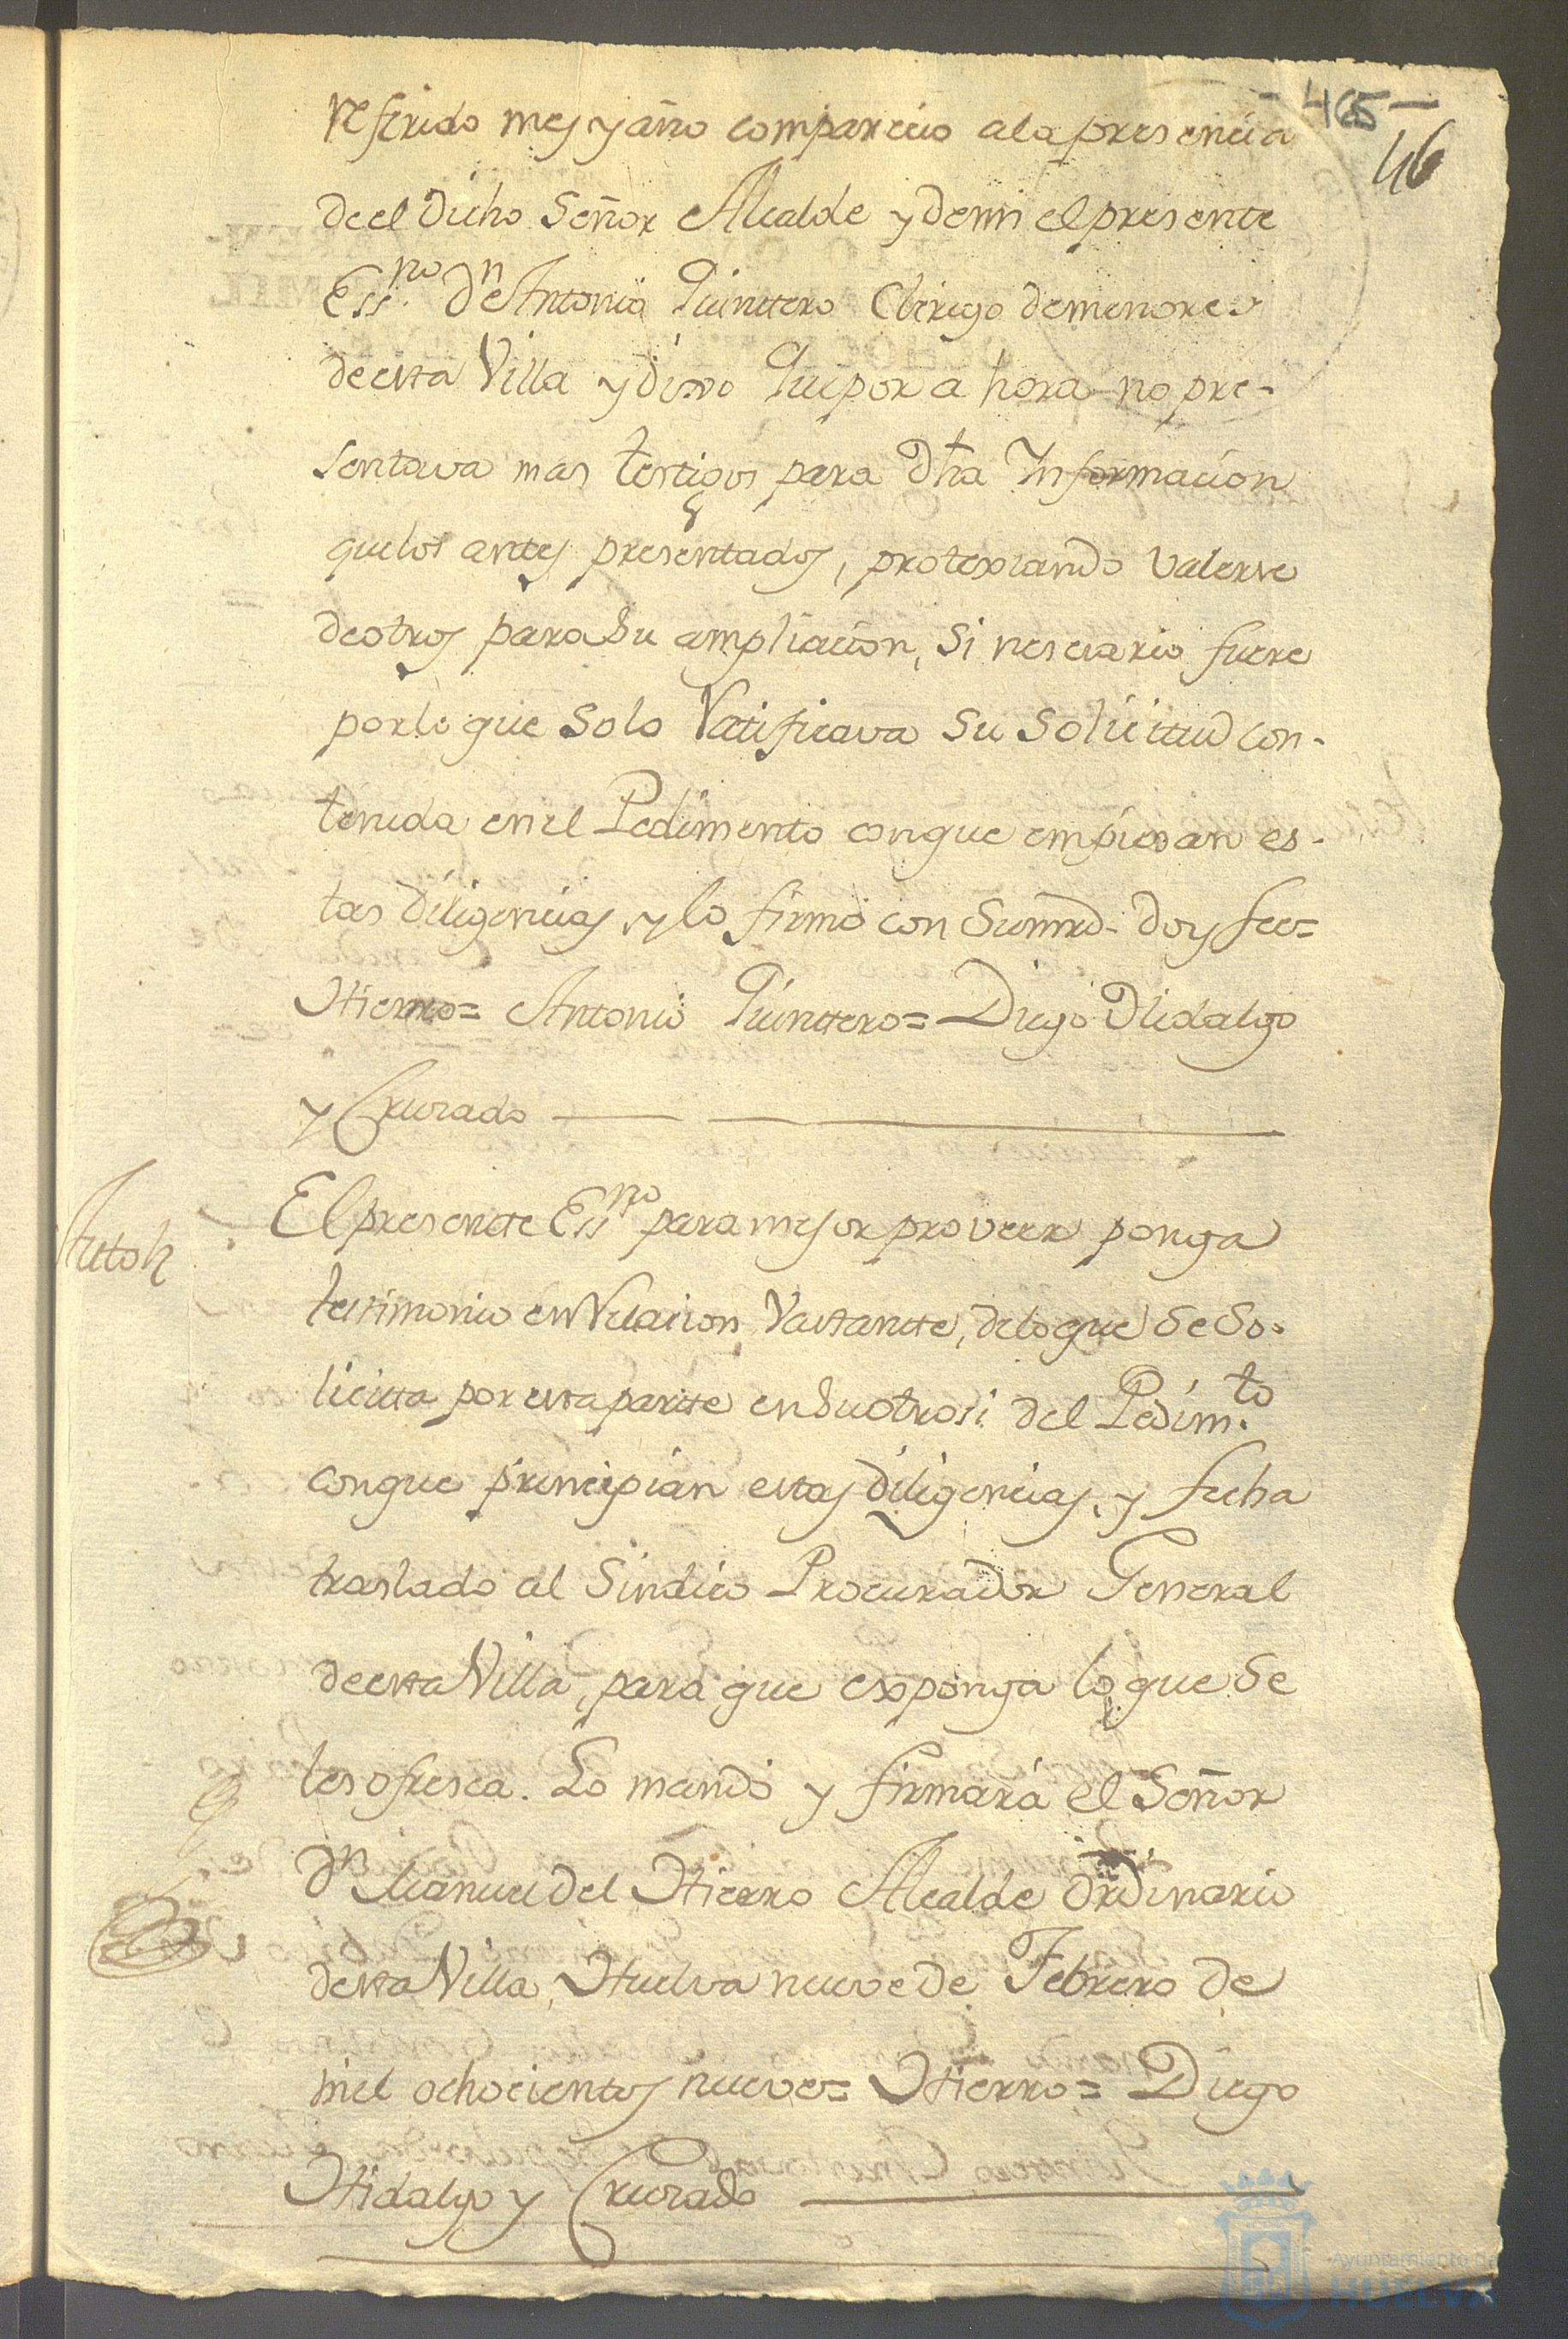 - 465 -
46
referido mes y año comparecio a la presencia
de el dicho Señor Alcalde y demi el presente
Essno. Dn Antonio Quinttero Clerigo de menores
de esta Villa y dixo Que por a hora no pre-
sentava mas testigos para Dha Informacion
que los antes presentados, protextando valerse
de otros para su ampliacion, Si nesesario fuere
por lo que Solo Ratificava Su Solicitud con-
tenida en el Pedimento con que empiesan es-
tas diligencias, y lo firmo con Sumrd. doy fee=
Hierro= Antonio Quinttero= Diego Hidalgo
y Crusado
Auto
El presente Essno para mejor proveer ponga
testimonio en Relacion, Vastante, delo que se So-
licitta por esta partte en su otrosi del Pedimto.
con que principian estas diligencias, y fecha
traslado al Sindico Procurador General
de esta Villa, para que exponga lo que se
les ofresca. Lo mandó y firmará el Señor
Dn Manuel del Hierro Alcalde Ordinario
desta Villa, Huelva nueve de Febrero de
mil ochocientos nueve= Hierro= Diego
Hidalgo y Crusado
Ayuntamiento de
HUELVA